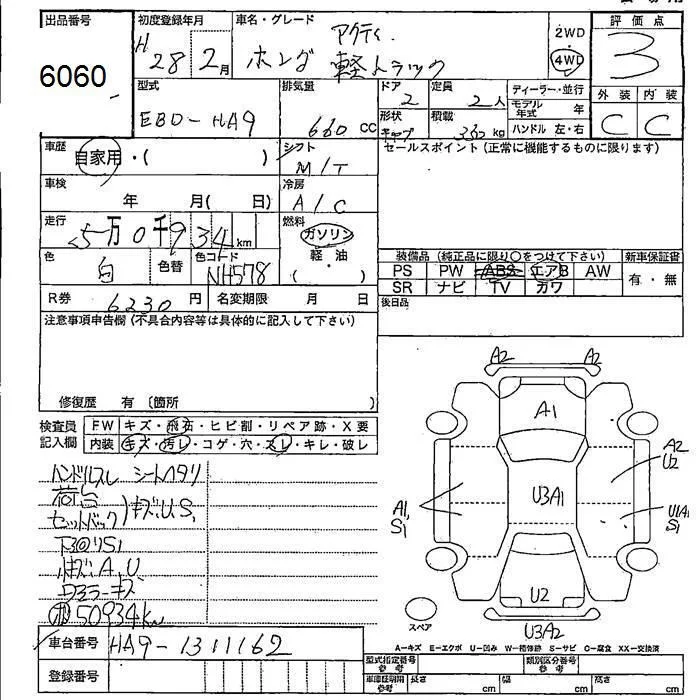 出品番号 初度登録年月 車名・グレード 評価点
6060 H 28 2月 ホンダ アクティ 軽トラック 2WD 4WD 3
型式 排気量 ドア 定員 ディーラー・並行 外装 内装
EBD-HA9 660 CC 2 2人 モデル年式 年 C C
形状 積載 350 kg ハンドル 左・右
車歴 自家用・( ) シフト M/T セールスポイント(正常に機能するものに限ります)
車検 年 月( 日) 冷房 A/C
走行 5万0千934km 燃料 ガソリン 軽油 ( )
色 白 色替 色コード NH578
装備品(純正品に限り○をつけて下さい) 新車保証書
PS PW ABS エアB AW 有・無
SR ナビ TV カワ
R券 6230円 名変期限 月 日 後日品
注意事項申告欄(不具合内容等は具体的に記入して下さい)
修復歴 有 〔箇所 〕
検査員記入欄 FW キズ・飛石・ヒビ割・リペア跡・X要
内装 キズ・汚レ・コゲ・穴・スレ・キレ・破レ
ハンドルスレ シートヘタリ
荷台
セットバック キズ.U.S,
下回りS1
キズ.A.U.
キズ
50934km
A2 A2
A1
A2
U2
U3A1
A1,
S1
U1A1
S1
U2
スペア
U3A2
車台番号 HA9-1311162
A-キズ E-エクボ U-凹み W-補修跡 S-サビ C-腐食 XX-交換済
登録番号
型式指定番号 参考 類別区分番号 参考
車庫証明用 参考 長さ cm 幅 cm 高さ cm